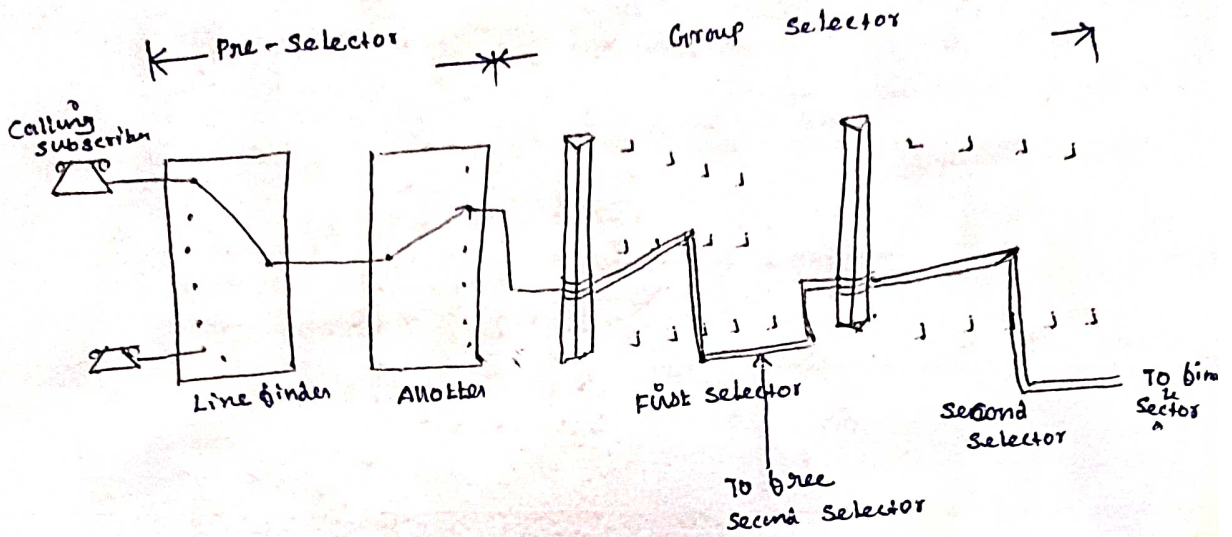 Pre-Selector
Group Selector
Calling
subscriber
Line finder
Allotter
First Selector
Second
Selector
To final
Selector
To free
Second Selector